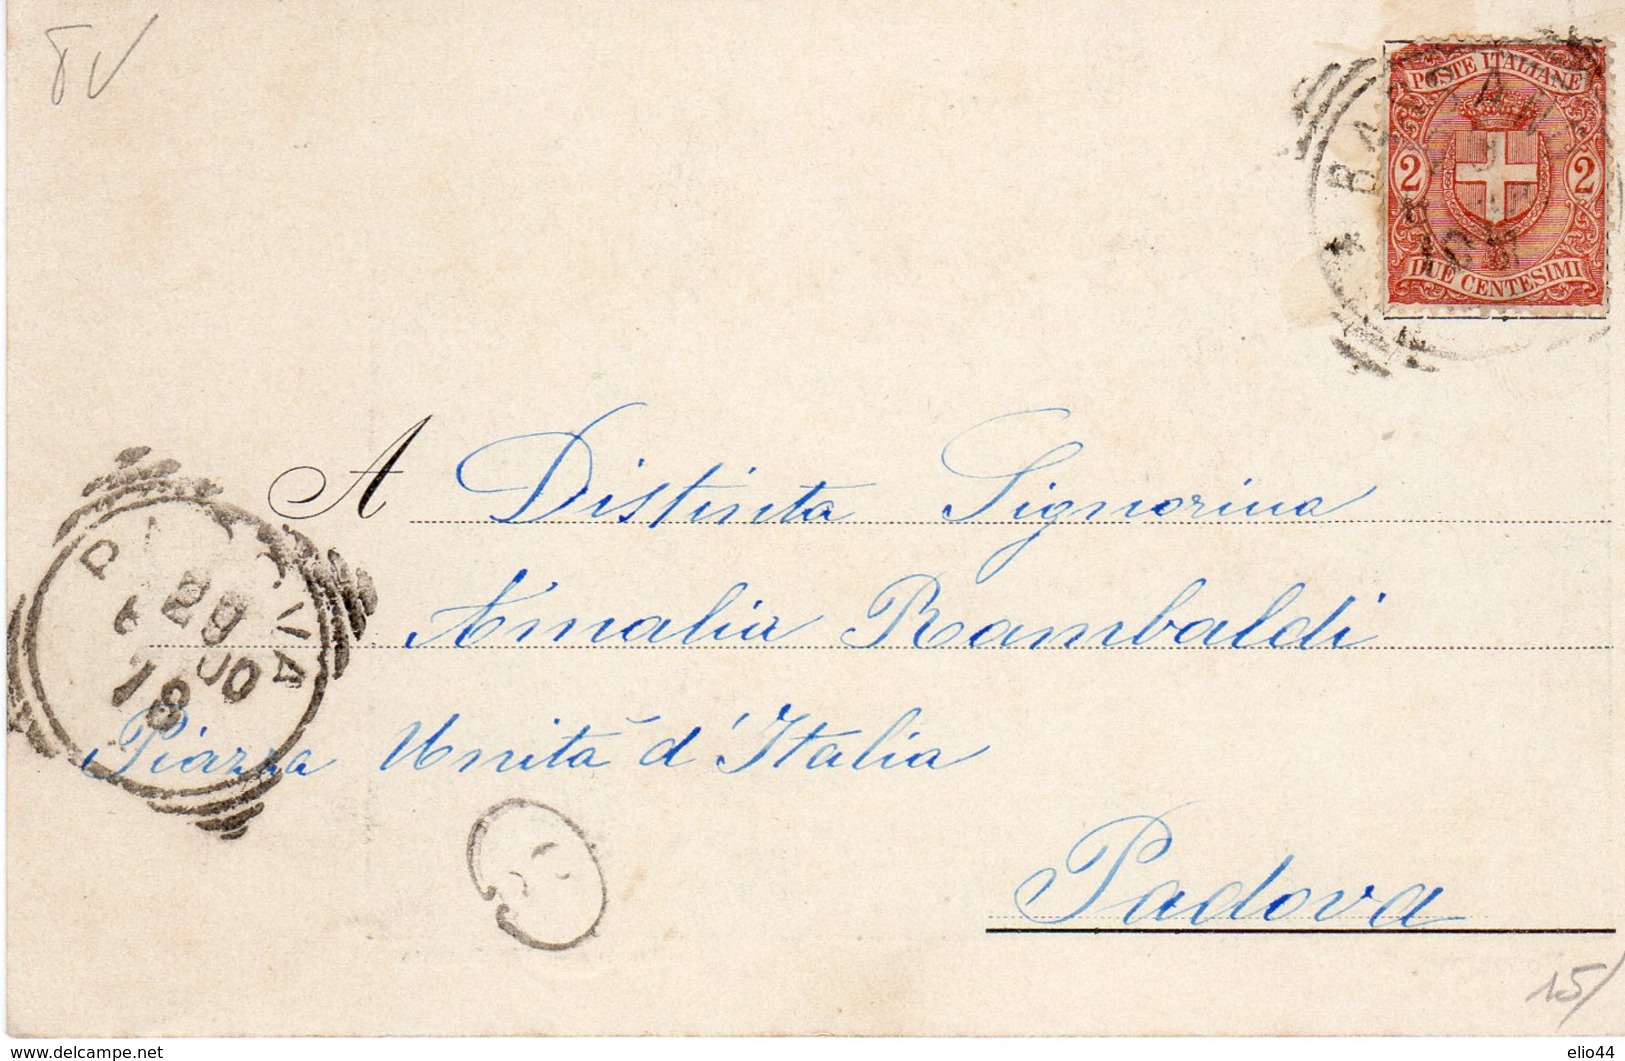 TV
POSTE ITALIANE
2 2
DUE CENTESIMI
A Distinta Signorina
Amalia Rambaldi
Piazza Unità d'Italia
Padova
PADOVA
29
00
18
15/
www.delcampe.net
elio44